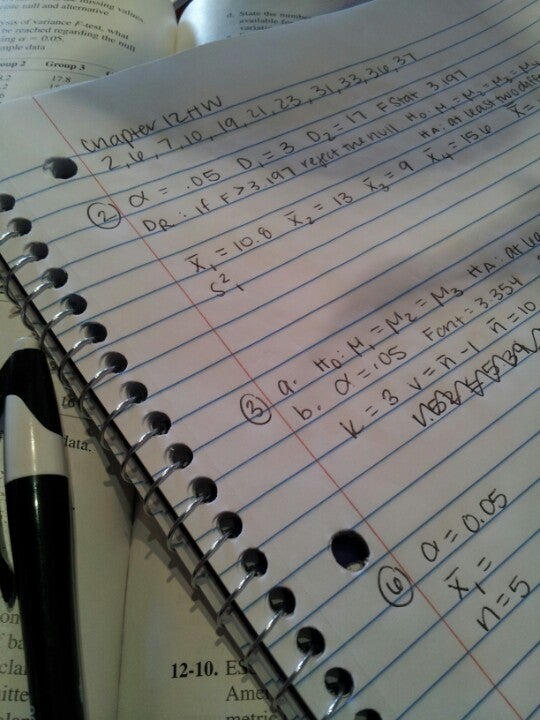 missing values.
null and alternative
ysis of variance F-test, what
be reached regarding the null
ing α = 0.05.
mple data
oup 2 Group 3
3.2 17.8
d. State the numbe
available fo
Chapter 12 HW
2, 6, 7, 10, 19, 21, 23, 31, 33, 36, 37
② α = .05 D₁ = 3 D₂ = 17 F Stat 3.197
DR: if F > 3.197 reject the null H₀: μ₁ = μ₂ = μ₃ = μ₄
HA: at least two diffe
X̄₁ = 10.8 X̄₂ = 13 X̄₃ = 9 X̄₄ = 15.6 X̄ =
S²₁
③ a. H₀: μ₁ = μ₂ = μ₃ HA: at lea
b. α = .05 Fcrit = 3.354
K = 3 v = n̄ - 1 n̄ = 10
⑥ α = 0.05
X̄₁ =
n = 5
to
data.
on
f ba
clai
itte
12-10. ES
Ame
metric